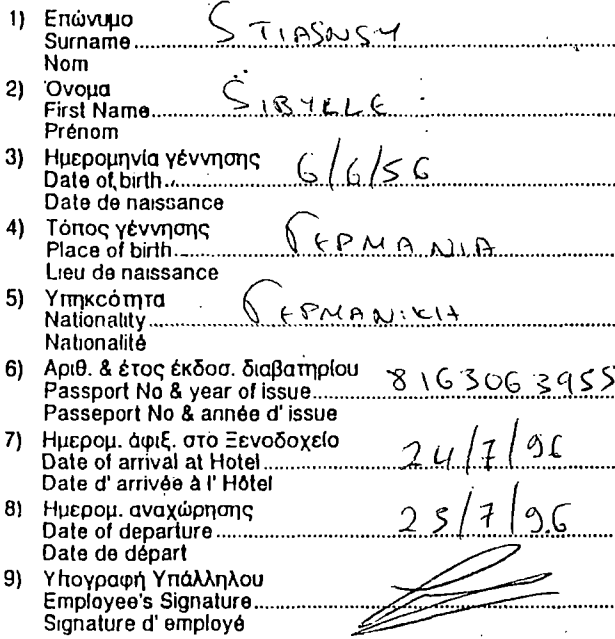 1) Επώνυμο
Surname STIASNSY
Nom
2) Όνομα
First Name SIBYLLE
Prénom
3) Ημερομηνία γέννησης
Date of birth 6/6/56
Date de naissance
4) Τόπος γέννησης
Place of birth ΓΕΡΜΑΝΙΑ
Lieu de naissance
5) Υπηκοότητα
Nationality ΓΕΡΜΑΝΙΚΗ
Nationalité
6) Αριθ. & έτος έκδοσ. διαβατηρίου
Passport No & year of issue 8163063955
Passeport No & année d' issue
7) Ημερομ. άφιξ. στο Ξενοδοχείο
Date of arrival at Hotel 24/7/96
Date d' arrivée à l' Hôtel
8) Ημερομ. αναχώρησης
Date of departure 25/7/96
Date de départ
9) Υπογραφή Υπάλληλου
Employee's Signature
Signature d' employé